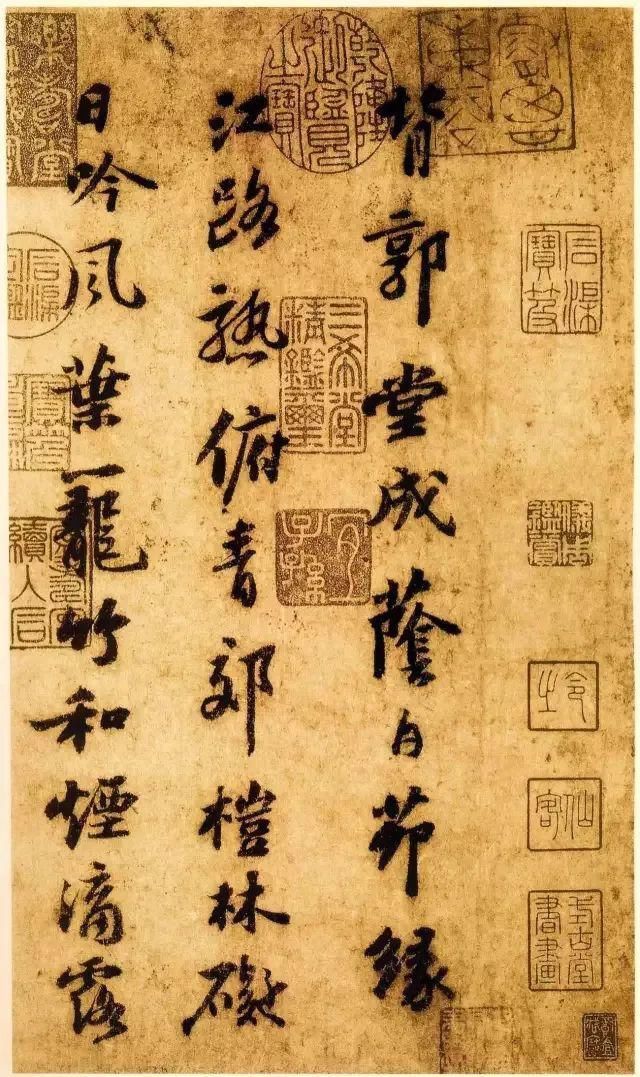 石渠寶笈
令之
仙客
式古堂書畫
背郭堂成蔭白茆緣
乾隆御覽之寶
三希堂精鑑璽
宜子孫
江路熟俯青郊榿林礙
日吟風葉籠竹和煙滴露